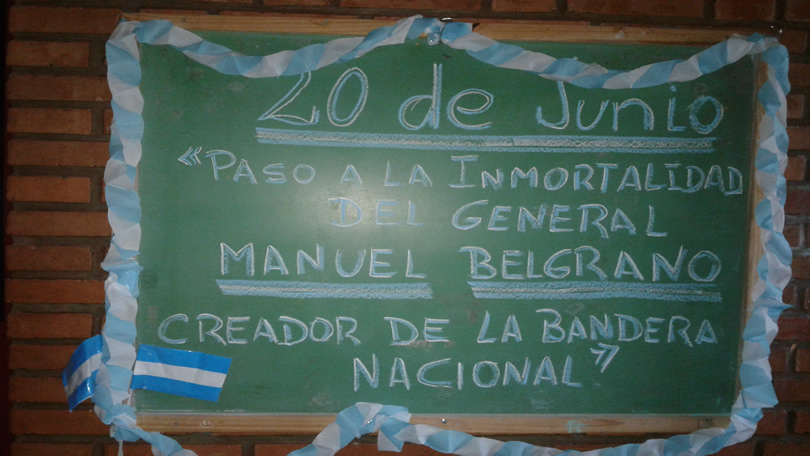 20 de Junio
"Paso a la Inmortalidad
del General
Manuel Belgrano
Creador de la Bandera
Nacional"